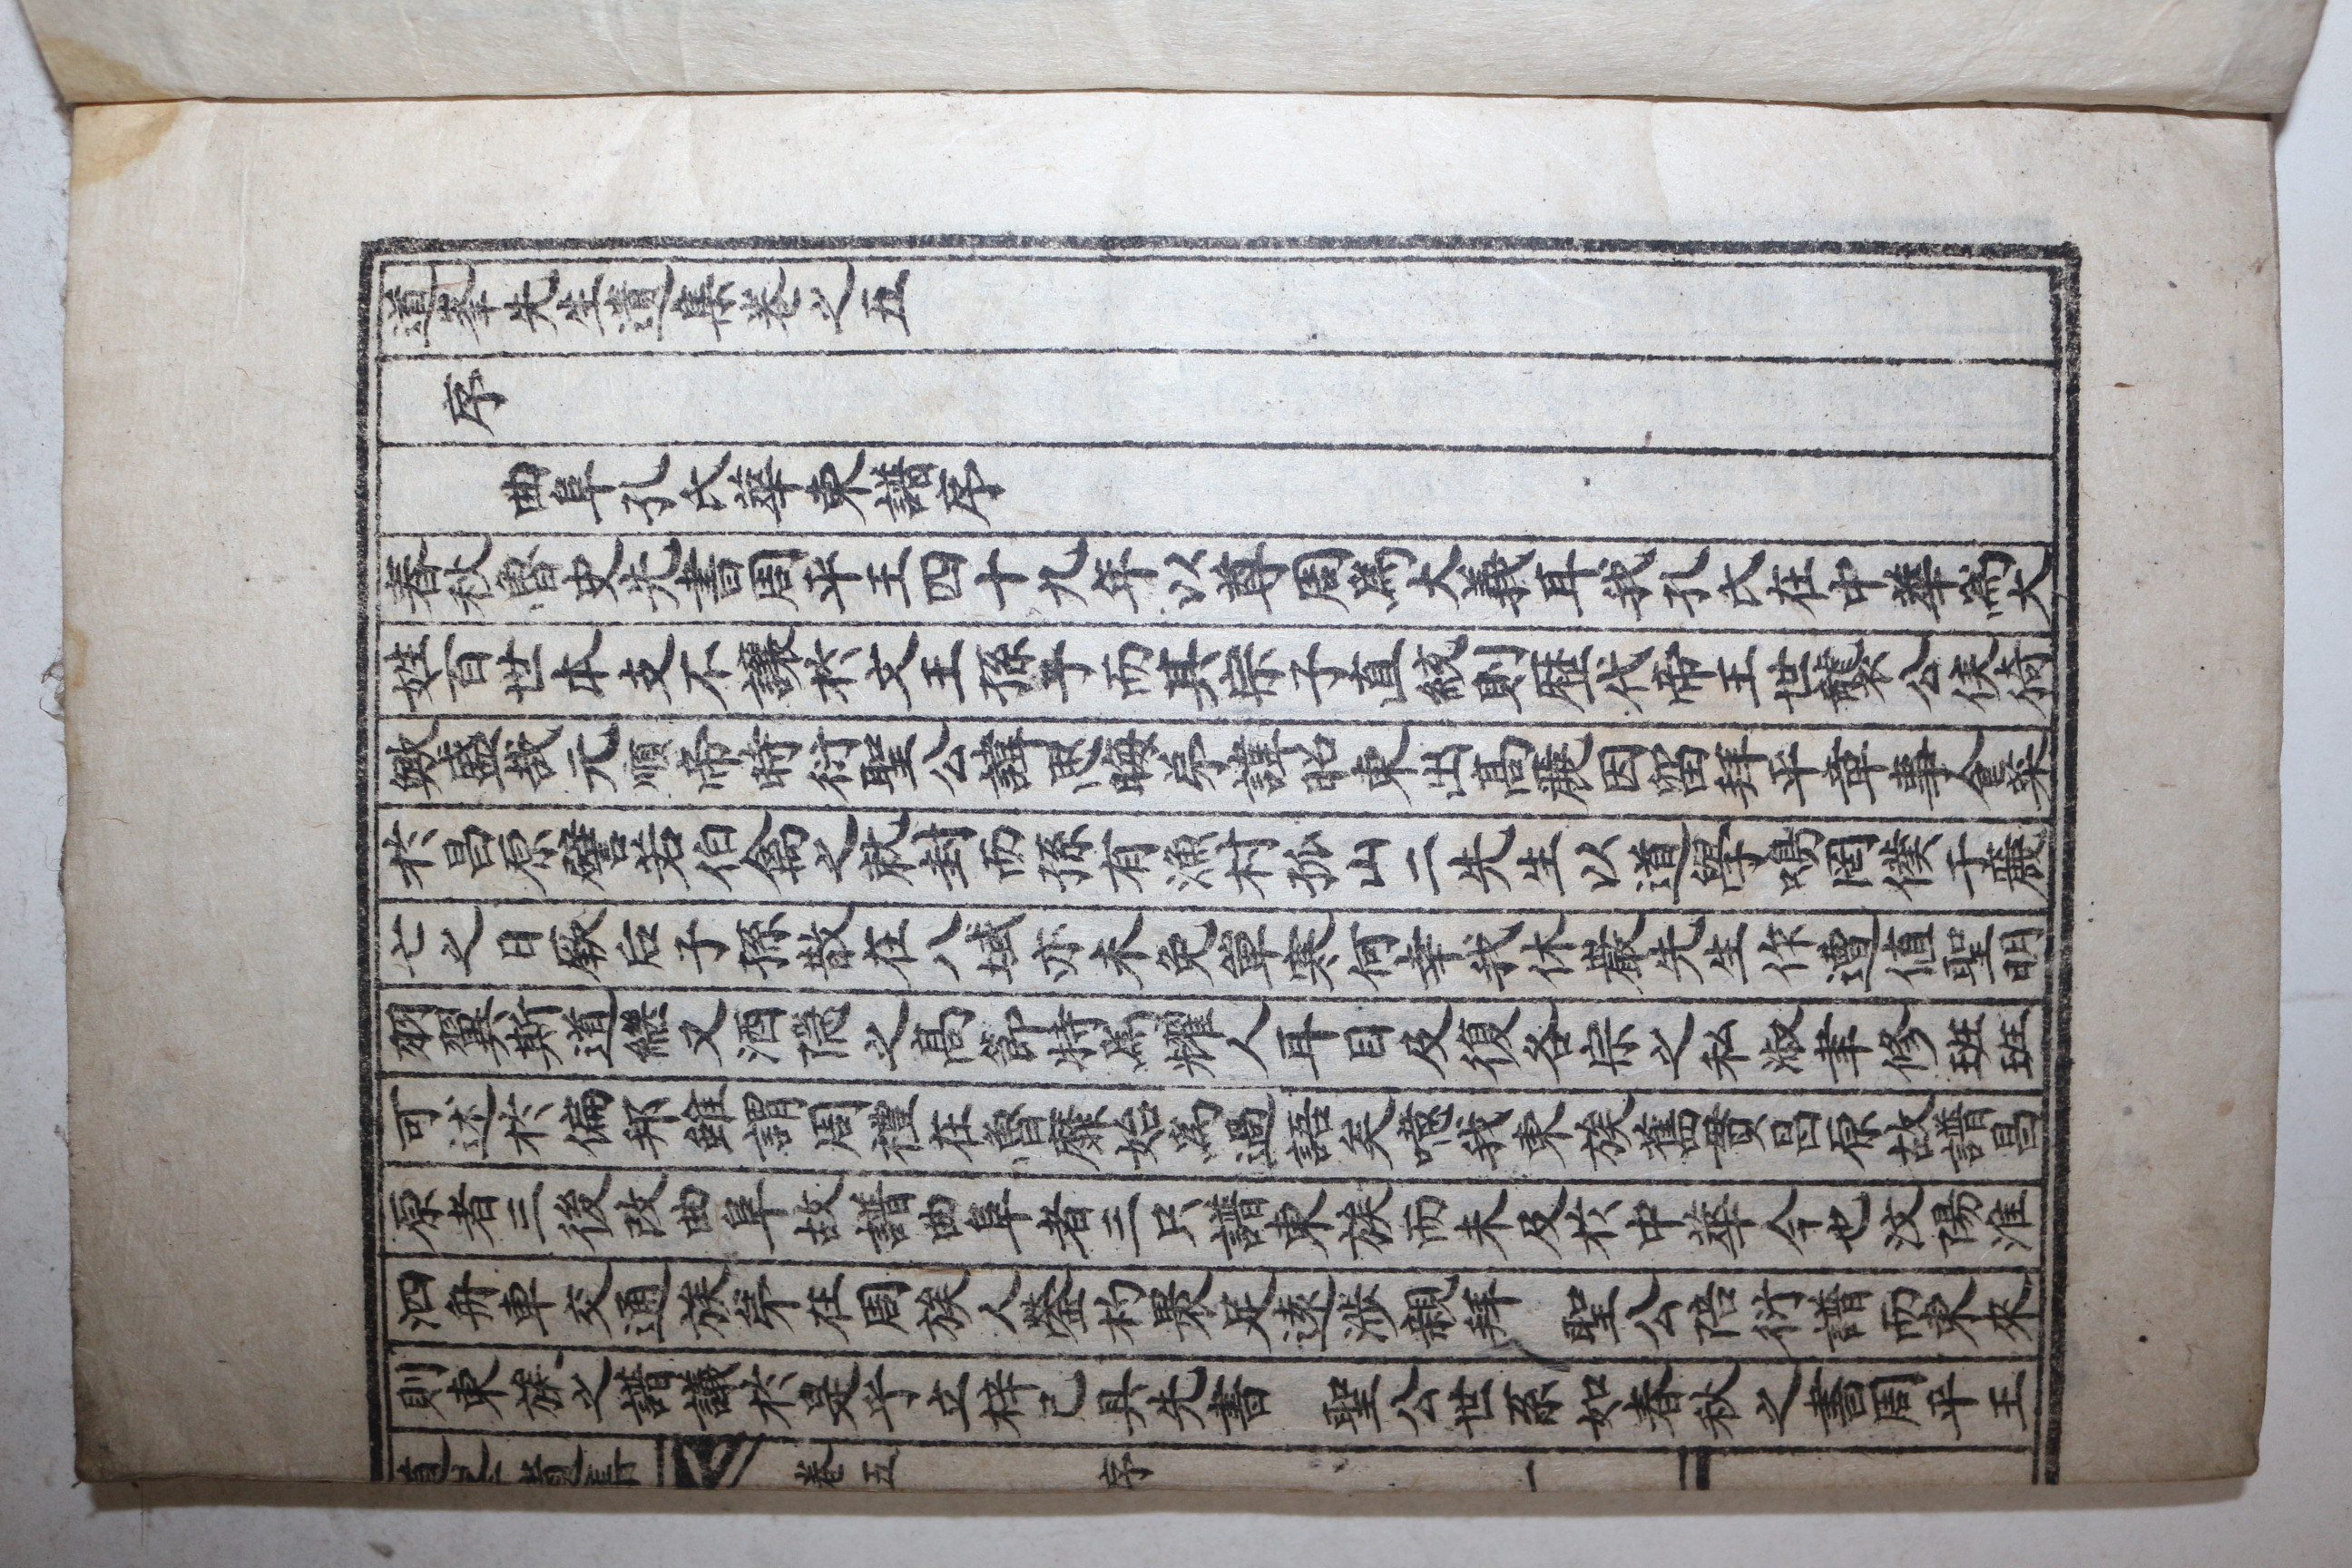 道峯先生遺集卷之五
序
曲阜孔氏華東譜序
春秋魯史先書周平王四十九年以尊周爲大義耳我孔氏在中華爲大
姓百世本支不讓於文王孫子而其宗子直統則歷代帝王世襲公侯猗
歟盛哉元順帝時衍聖公諱思晦弟諱昭東出高麗因留拜平章事食菜
於昌原譬若伯禽之就封而孫有漁村孤山二先生以道學鳴罔僕于麗
亡之日厥后子孫散在八域亦未免單寒何幸我休巖先生作遭值聖明
羽翼斯道繼又酒隱之高節特爲耀人耳目及復各宗之私淑聿修班班
可述於偏邦雖謂周禮在魯靡始爲過語矣噫我東族舊貫昌原故譜昌
原者三後改曲阜故譜曲阜者三只譜東族而未及於中華今也汶陽淮
泗舟車交通族弟在周族人瑩杓裹足遠涉親拜 聖公陪衍譜而東來
則東族之譜議於是乎立梓已具先書 聖公世系如春秋之書周平王
道峯遺集 卷五 序 一